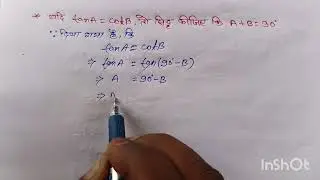 * यदि tanA = cotB, तो सिद्ध कीजिए कि A+B = 90°
∵ दिया गया है, कि
tanA = cotB
⇒ tanA = tan(90°-B)
⇒ A = 90°-B
⇒ A
InShOt